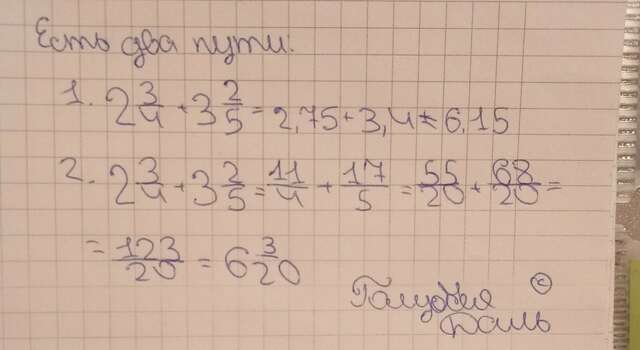 Есть два пути:
1. 2 3/4 + 3 2/5 = 2,75 + 3,4 = 6,15
2. 2 3/4 + 3 2/5 = 11/4 + 17/5 = 55/20 + 68/20 =
= 123/20 = 6 3/20
Голубая ©
Даль